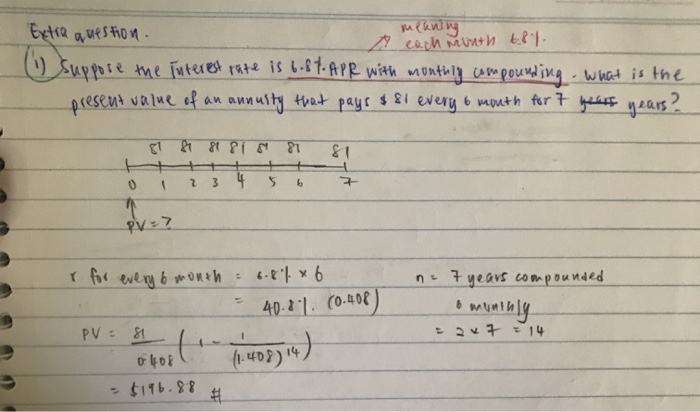 Extra question.
meaning
each month 6.8%.
(1) Suppose the interest rate is 6.8% APR with monthly compounding. What is the
present value of an annuity that pays $81 every 6 month for 7 years years?
81 81 81 81 81 81 81
0 1 2 3 4 5 6 7
PV = ?
r for every 6 month = 6.8% × 6
= 40.8%. (0.408)
n = 7 years compounded
6 monthly
= 2 × 7 = 14
PV = 81/0.408 (1 - 1/(1.408)^14)
= $196.88 #